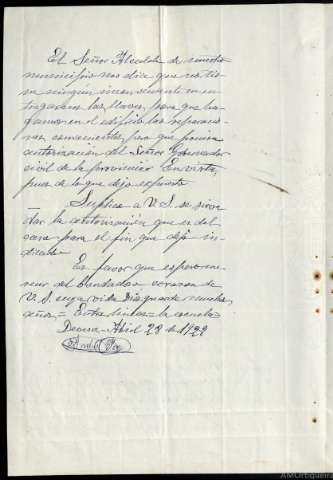 El Señor Alcalde de nuestro
municipio nos dice que no tie-
ne ningún inconveniente en en-
tregarnos las llaves, para que ha-
gamos en el edificio las reparacio-
nes convenientes, pero que precisa
autorización del Señor Gobernador
civil de la provincia. En virtu,
pues de lo que dejo expuesto
Suplica a V. S. se sirva
dar la autorización que es del
caso para el fin que dejo in-
dicado.
Es favor que espero me-
recer del bondadoso corazon de
V. S. cuya vida Dios guarde muchos
años = Entre lineas = la escuela =
Abril 28 de 1922
AMOrtigueira